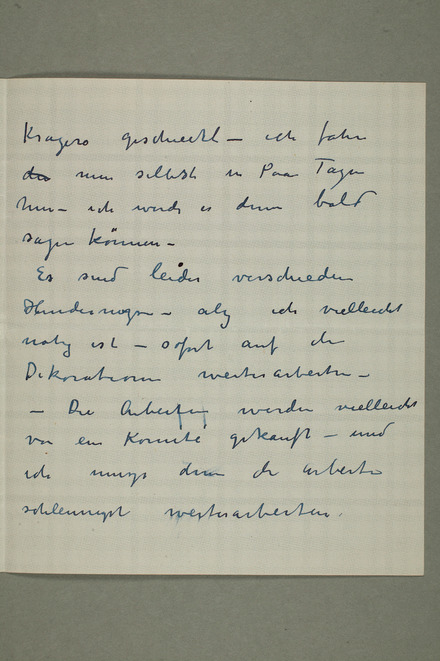 Kragerø geschickt – ich fahre
nun selbst in Paar Tagen
hin – ich werde es dann bald
sagen können –
Es sind leider verschiedene
Hindernisse – ich vielleicht
nötig ist – sofort auf die
Dekorationen weiterarbeiten –
– Die werden vielleicht
von ein Komité gekauft – und
ich muss dann die arbeiten
schleunigst weiterarbeiten.